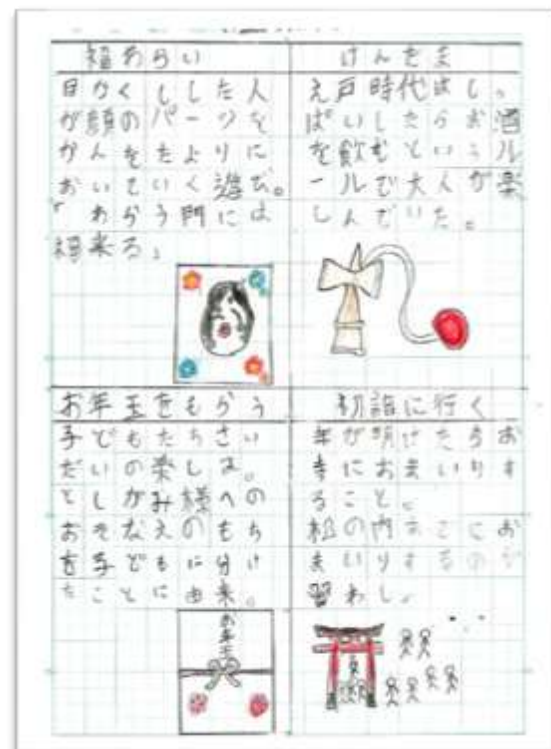 福わらい
目かくしした人
が顔のパーツを
かんをたよりに
おいていく遊び。
「わらう門には
福来る」
けんだま
え戸時代はしっ
ぱいしたらお酒
を飲むというル
ールで大人が楽
しんでいた。
お年玉をもらう
子どもたちさい
だいの楽しみ。
としがみ様への
おそなえのもち
を子どもに分け
たことに由来。
お年玉
初詣に行く
年が明けたらお
寺におまいりす
ること。
松の内までにお
まいりするのが
習わし。